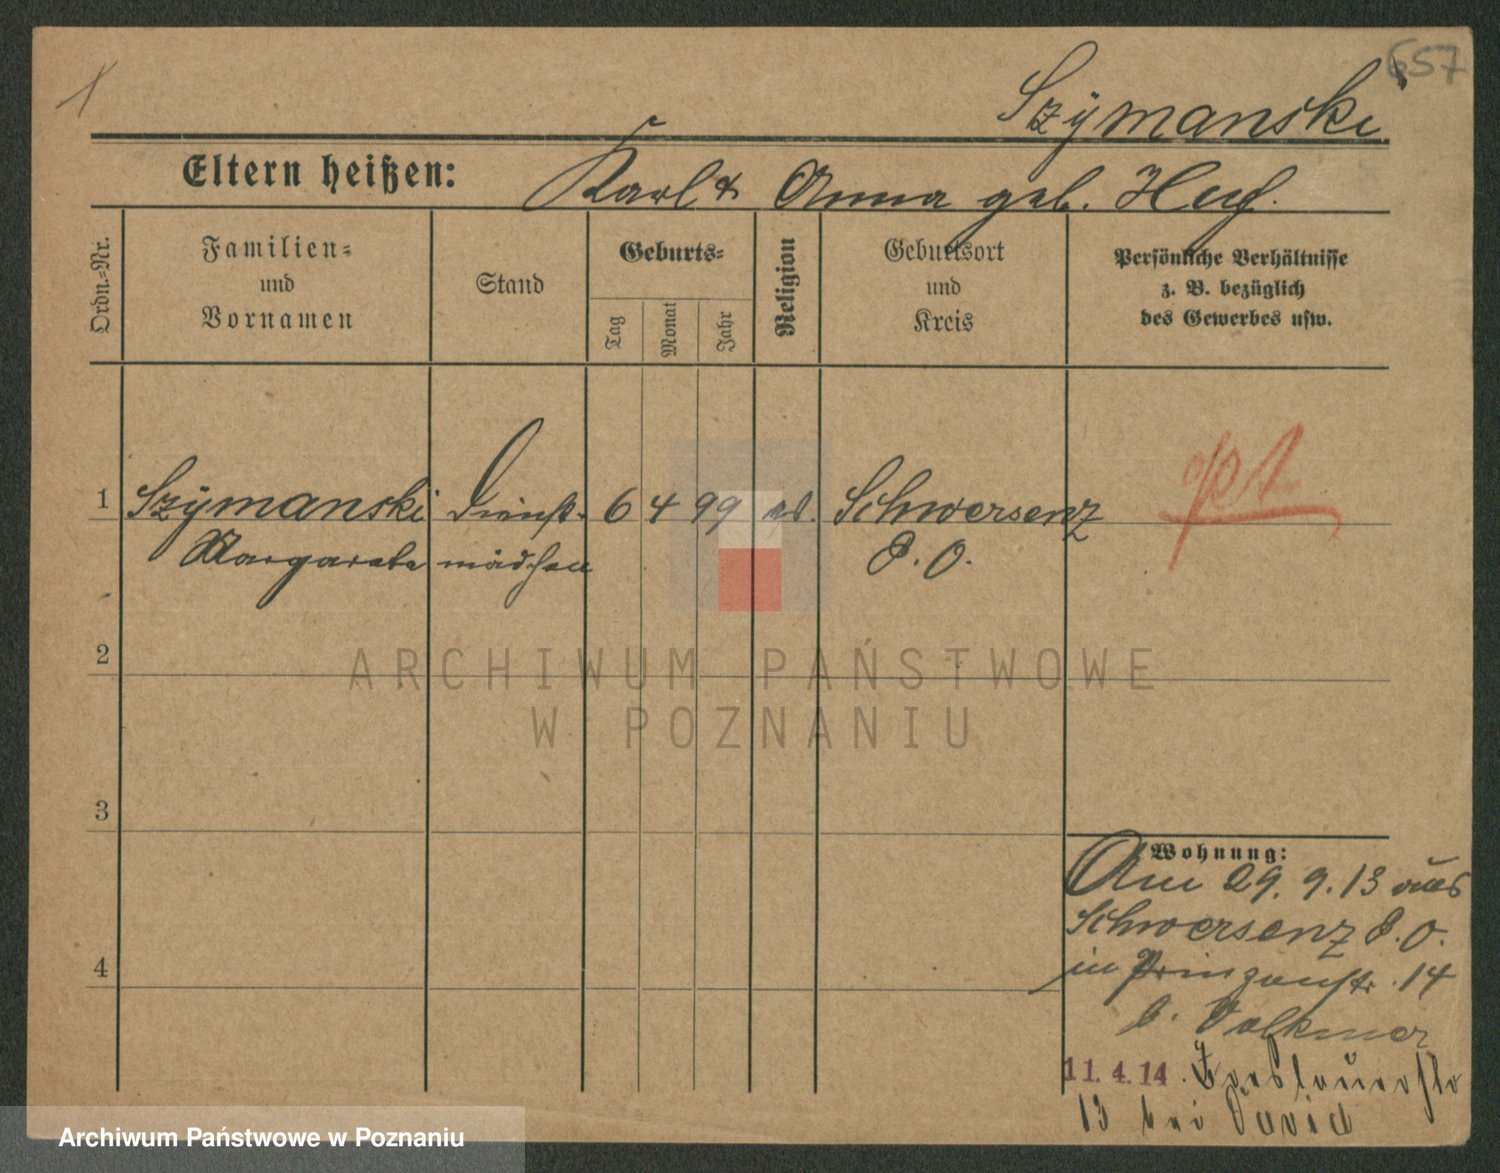 657
Szÿmanski
Eltern heißen: Karl & Anna geb. Huf.
Ordn.=Nr.
Familien=
und
Vornamen
Stand
Geburts=
Tag
Monat
Jahr
Religion
Geburtsort
und
Kreis
Persönliche Verhältnisse
z. B. bezüglich
des Gewerbes usw.
1 Szÿmanski Dienst- 6 4 99 Schwersenz
Margarete mädchen P. O.
2
3
4
Wohnung:
Am 29. 9. 13 aus
Schwersenz P. O.
in Prinzenstr. 14
b. Volkmer
11. 4. 14. Breslauerstr
13 bei David
ARCHIWUM PAŃSTWOWE
W POZNANIU
Archiwum Państwowe w Poznaniu